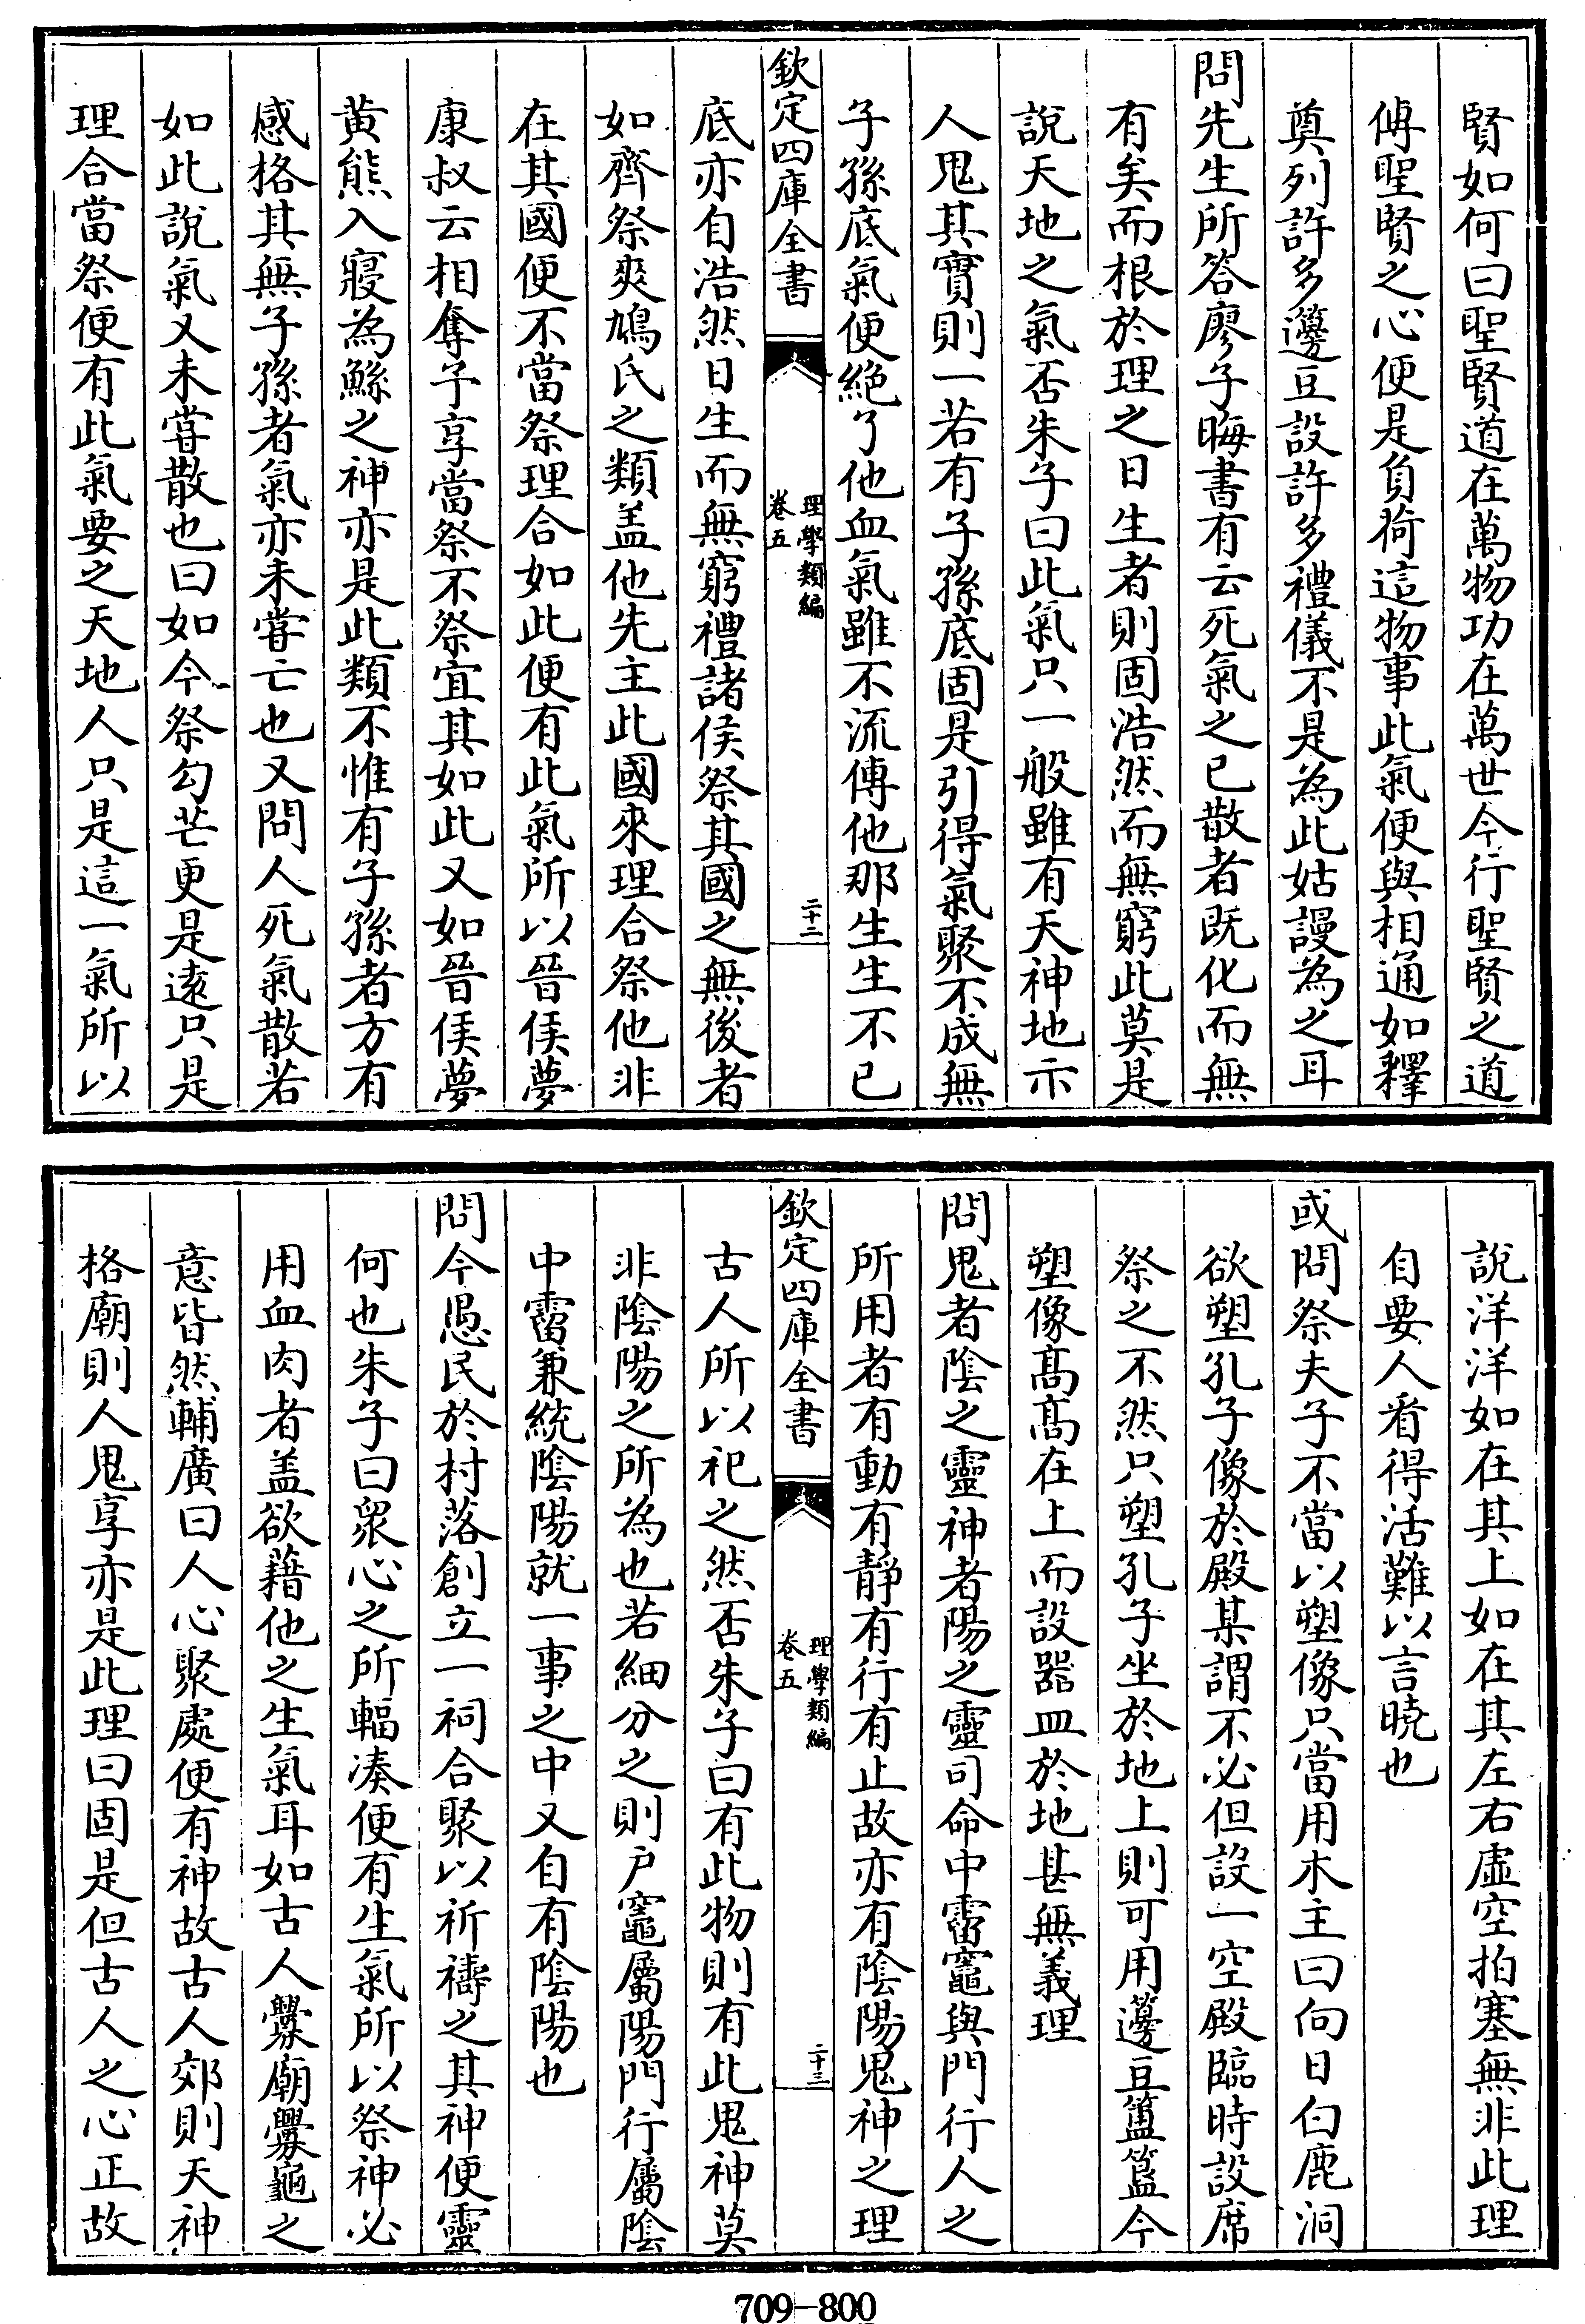 賢如何曰聖賢道在萬物功在萬世今行聖賢之道
傳聖賢之心便是負荷這物事此氣便與相通如釋
奠列許多籩豆設許多禮儀不是為此姑謾為之耳
問先生所答廖子晦書有云死氣之已散者既化而無
有矣而根於理之日生者則固浩然而無窮此莫是
說天地之氣否朱子曰此氣只一般雖有天神地示
人鬼其實則一若有子孫底固是引得氣聚不成無
子孫底氣便絶了他血氣雖不流傳他那生生不已
欽定四庫全書
理學類編
卷五
二十二
底亦自浩然日生而無窮禮諸侯祭其國之無後者
如齊祭爽鳩氏之類盖他先主此國來理合祭他非
在其國便不當祭理合如此便有此氣所以晉侯夢
康叔云相奪予享當祭不祭宜其如此又如晉侯夢
黃熊入寢為鯀之神亦是此類不惟有子孫者方有
感格其無子孫者氣亦未嘗亡也又問人死氣散若
如此說氣又未嘗散也曰如今祭勾芒更是遠只是
理合當祭便有此氣要之天地人只是這一氣所以
說洋洋如在其上如在其左右虛空拍塞無非此理
自要人看得活難以言曉也
或問祭夫子不當以塑像只當用木主曰向日白鹿洞
欲塑孔子像於殿某謂不必但設一空殿臨時設席
祭之不然只塑孔子坐於地上則可用籩豆簠簋今
塑像髙髙在上而設器皿於地甚無義理
問鬼者陰之靈神者陽之靈司命中霤竈與門行人之
所用者有動有靜有行有止故亦有陰陽鬼神之理
欽定四庫全書
理學類編
卷五
二十三
古人所以祀之然否朱子曰有此物則有此鬼神莫
非陰陽之所為也若細分之則戶竈屬陽門行屬陰
中霤兼統陰陽就一事之中又自有陰陽也
問今愚民於村落創立一祠合聚以祈禱之其神便靈
何也朱子曰衆心之所輻湊便有生氣所以祭神必
用血肉者盖欲藉他之生氣耳如古人釁廟釁龜之
意皆然輔廣曰人心聚處便有神故古人郊則天神
格廟則人鬼享亦是此理曰固是但古人之心正故
709-800